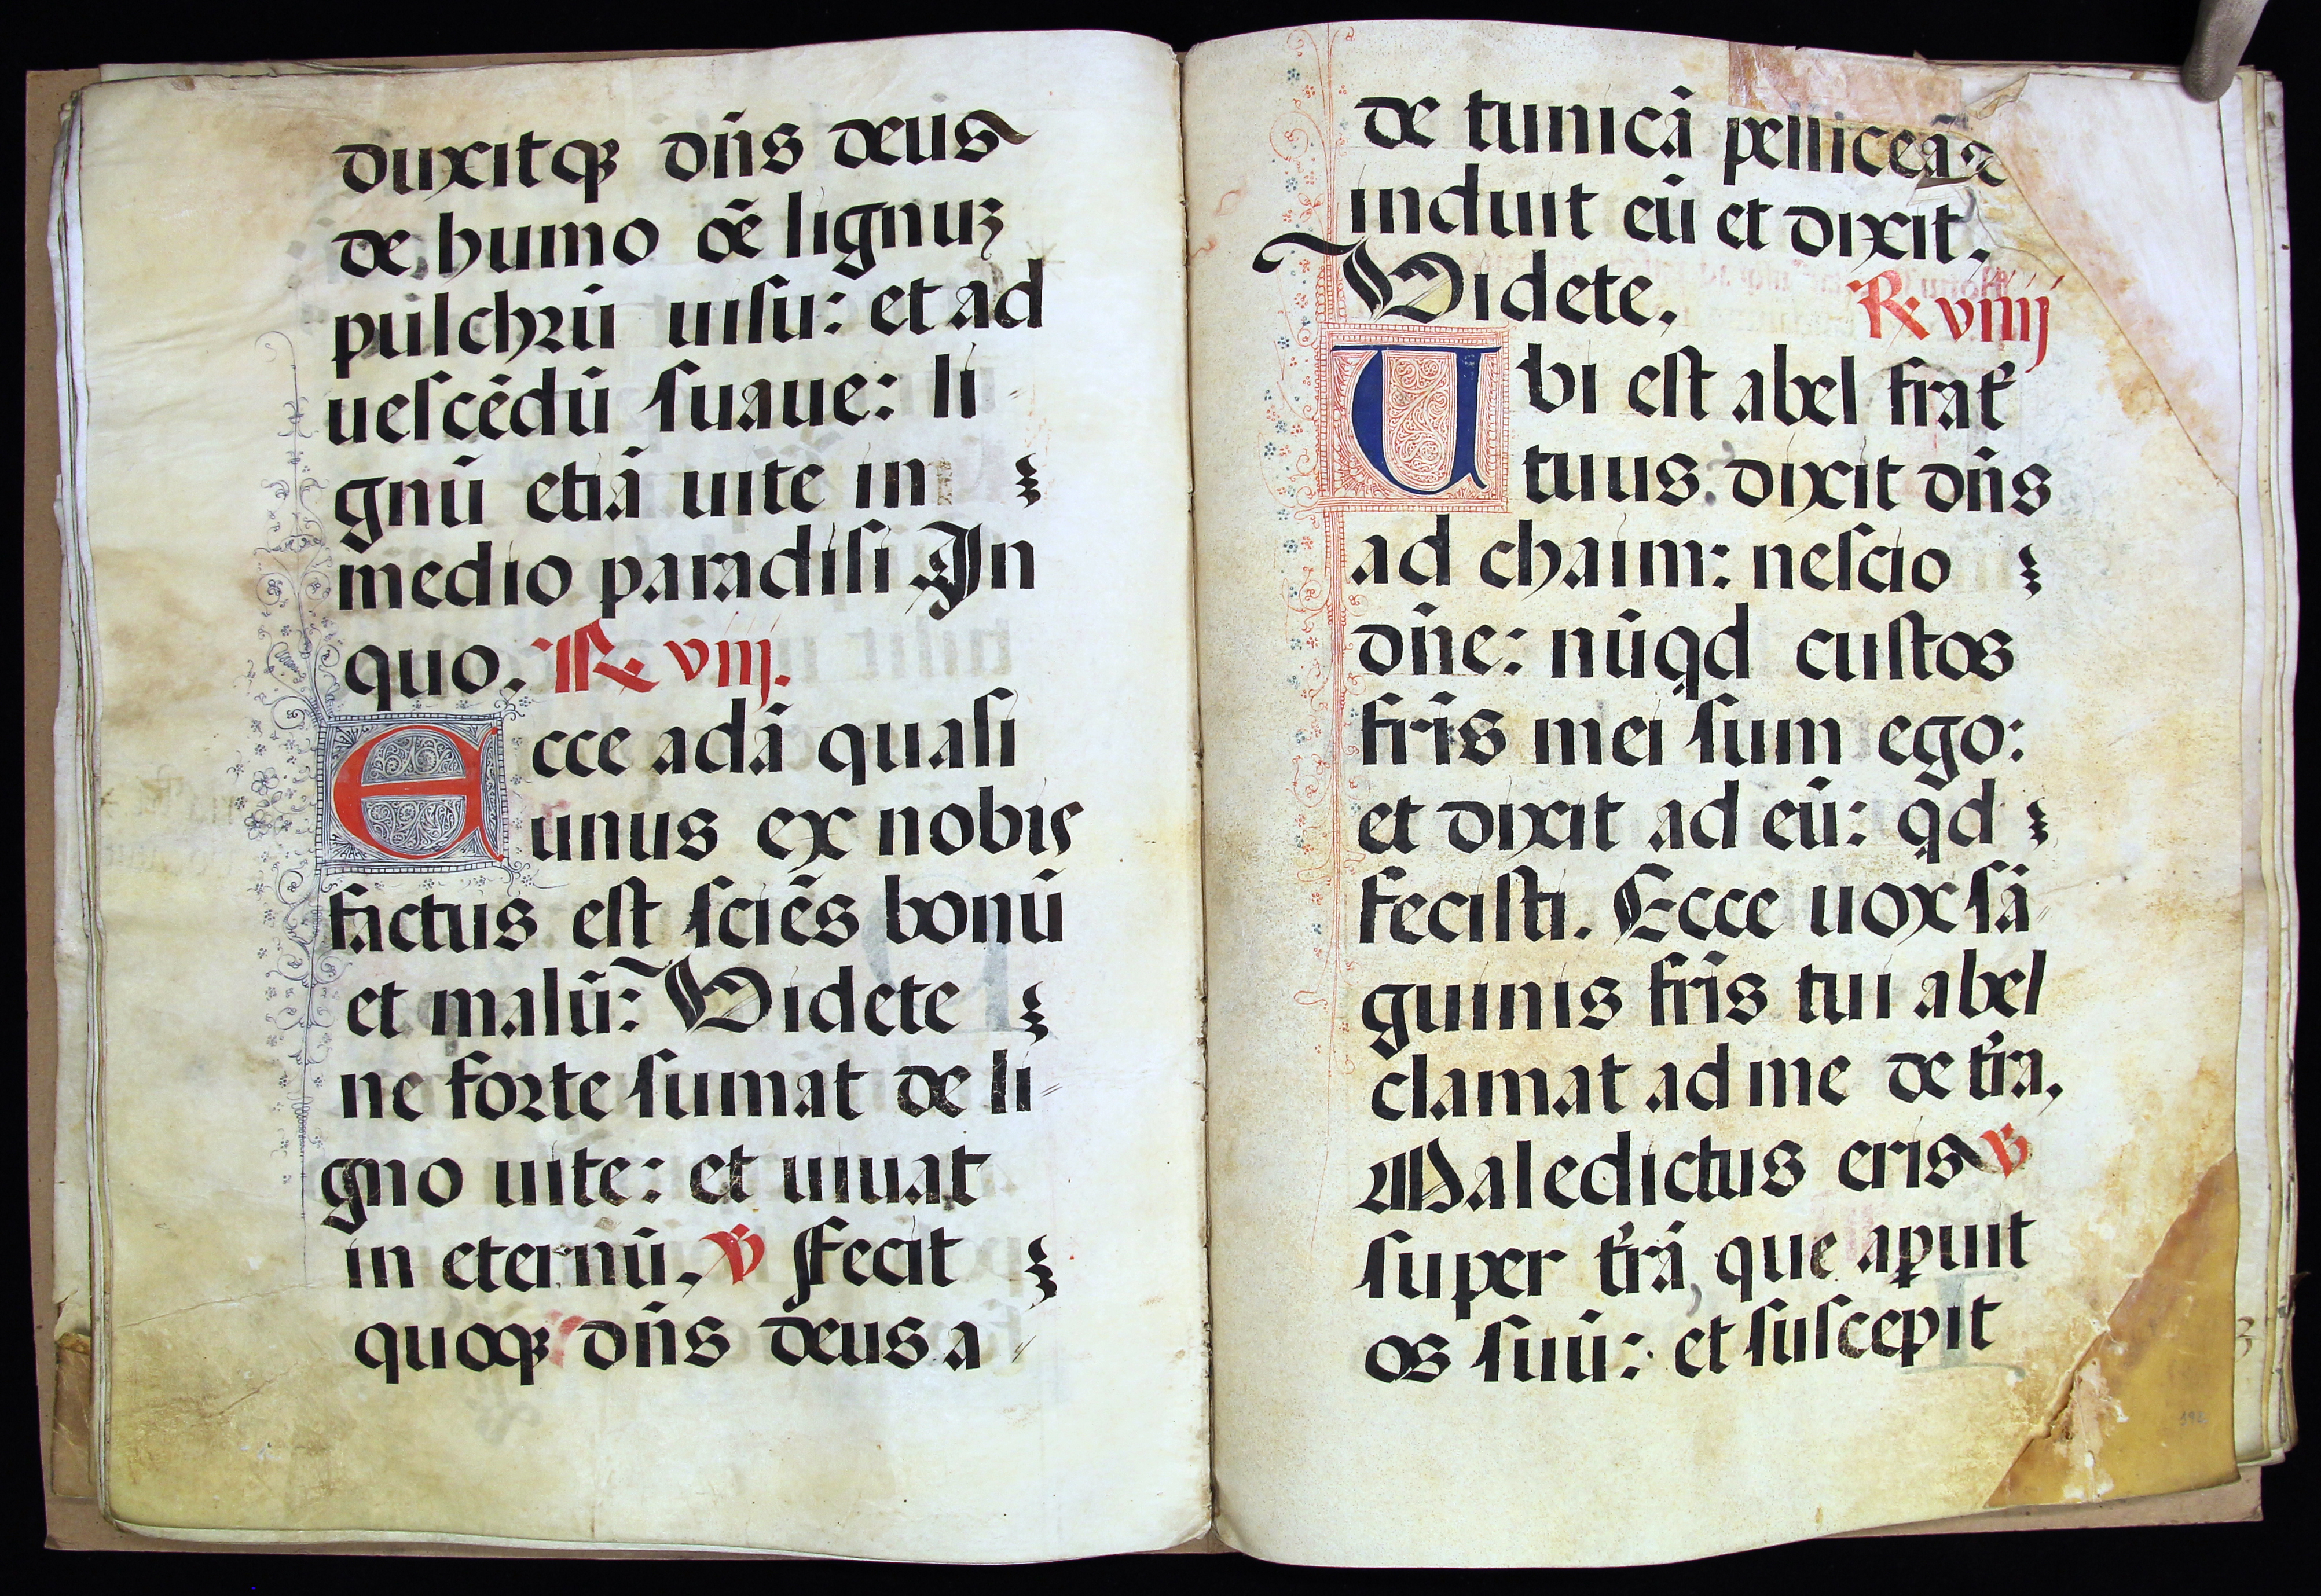 duxitqꝫ dn̄s deus
de humo oē lignuꝫ
pulchꝛū uiſu: et ad
ueſcēdū ſuaue: li
gnū etiā uite in
medio paradiſi In
quo. ℟ viij.
Ecce adā quaſi
unus ex nobis
factus eſt ſciēs bonū
et malū: Videte
ne foꝛte ſumat de li
gno uite: et uiuat
in eternū. ℣ Fecit
quoqꝫ dn̄s deus a
de tunicā pelliceā ⁊
induit eū et dixit.
Videte. ℟ viiij
Ubi eſt abel frat̄
tuus dixit dn̄s
ad chaim: neſcio
dn̄e: nūqd cuſtos
fr̄is mei ſum ego:
et dixit ad eū: qd
feciſti. Ecce uox ſā
guinis fr̄is tui abel
clamat ad me de tr̄a.
Maledictus eris ℣
ſuper tr̄ā que aꝑuit
os ſuū: et ſuſcepit